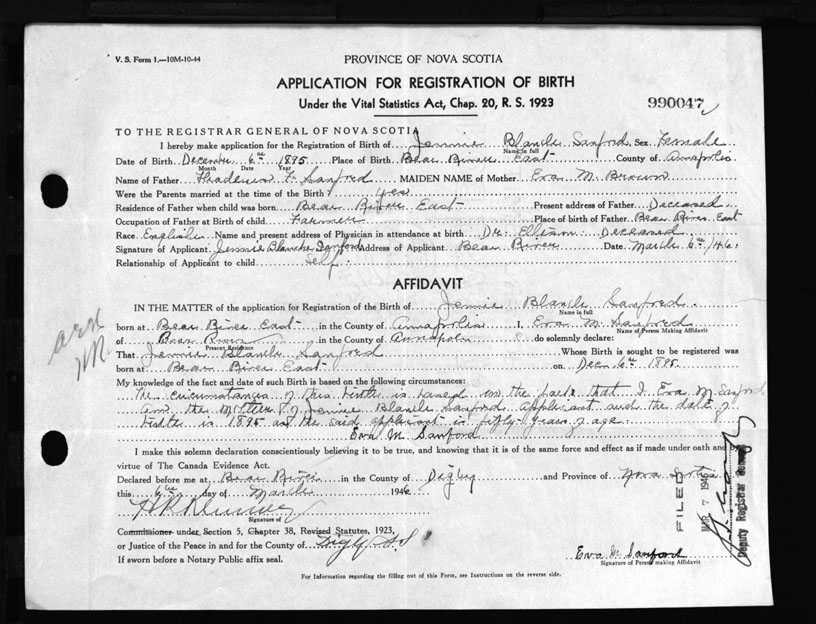 V. S. Form 1.—10M-10-44
PROVINCE OF NOVA SCOTIA
APPLICATION FOR REGISTRATION OF BIRTH
Under the Vital Statistics Act, Chap. 20, R. S. 1923
990047
TO THE REGISTRAR GENERAL OF NOVA SCOTIA
I hereby make application for the Registration of Birth of Jennie Blanche Sanford Sex Female
Name in full
Date of Birth December 6th 1895 Place of Birth Bear River East County of Annapolis
Month Date Year
Name of Father F. Sanford MAIDEN NAME of Mother Eva M. Brown
Were the Parents married at the time of the Birth? yes
Residence of Father when child was born Bear River East Present address of Father Deceased
Occupation of Father at Birth of child Farmer Place of birth of Father Bear River East
Race English Name and present address of Physician in attendance at birth Dr. Ellison Deceased
Signature of Applicant Jennie Blanche Sanford Address of Applicant Bear River Date March 6th/46
Relationship of Applicant to child Self
AFFIDAVIT
IN THE MATTER of the application for Registration of the Birth of Jennie Blanche Sanford
Name in full
born at Bear River East in the County of Annapolis I, Eva M. Sanford
Name of Person Making Affidavit
of Bear River in the County of Annapolis do solemnly declare:
Present Residence
That Jennie Blanche Sanford Whose Birth is sought to be registered was
born at Bear River East on Dec 6th 1895
My knowledge of the fact and date of such Birth is based on the following circumstances:
The circumstances of this birth is based on the fact that I Eva M Sanford
am the Mother of Jennie Blanche Sanford applicant and the date of
birth is 1895 as the said applicant is fifty years of age.
Eva M Sanford
I make this solemn declaration conscientiously believing it to be true, and knowing that it is of the same force and effect as if made under oath and by
virtue of The Canada Evidence Act.
Declared before me at Bear River in the County of Digby and Province of Nova Scotia
this 6th day of March 1946
Signature of
Commissioner under Section 5, Chapter 38, Revised Statutes, 1923,
or Justice of the Peace in and for the County of Digby N S
If sworn before a Notary Public affix seal.
Eva M Sanford
Signature of Person making Affidavit
For Information regarding the filling out of this Form, see Instructions on the reverse side.
FILED MAR 7 1946
Deputy Registrar General